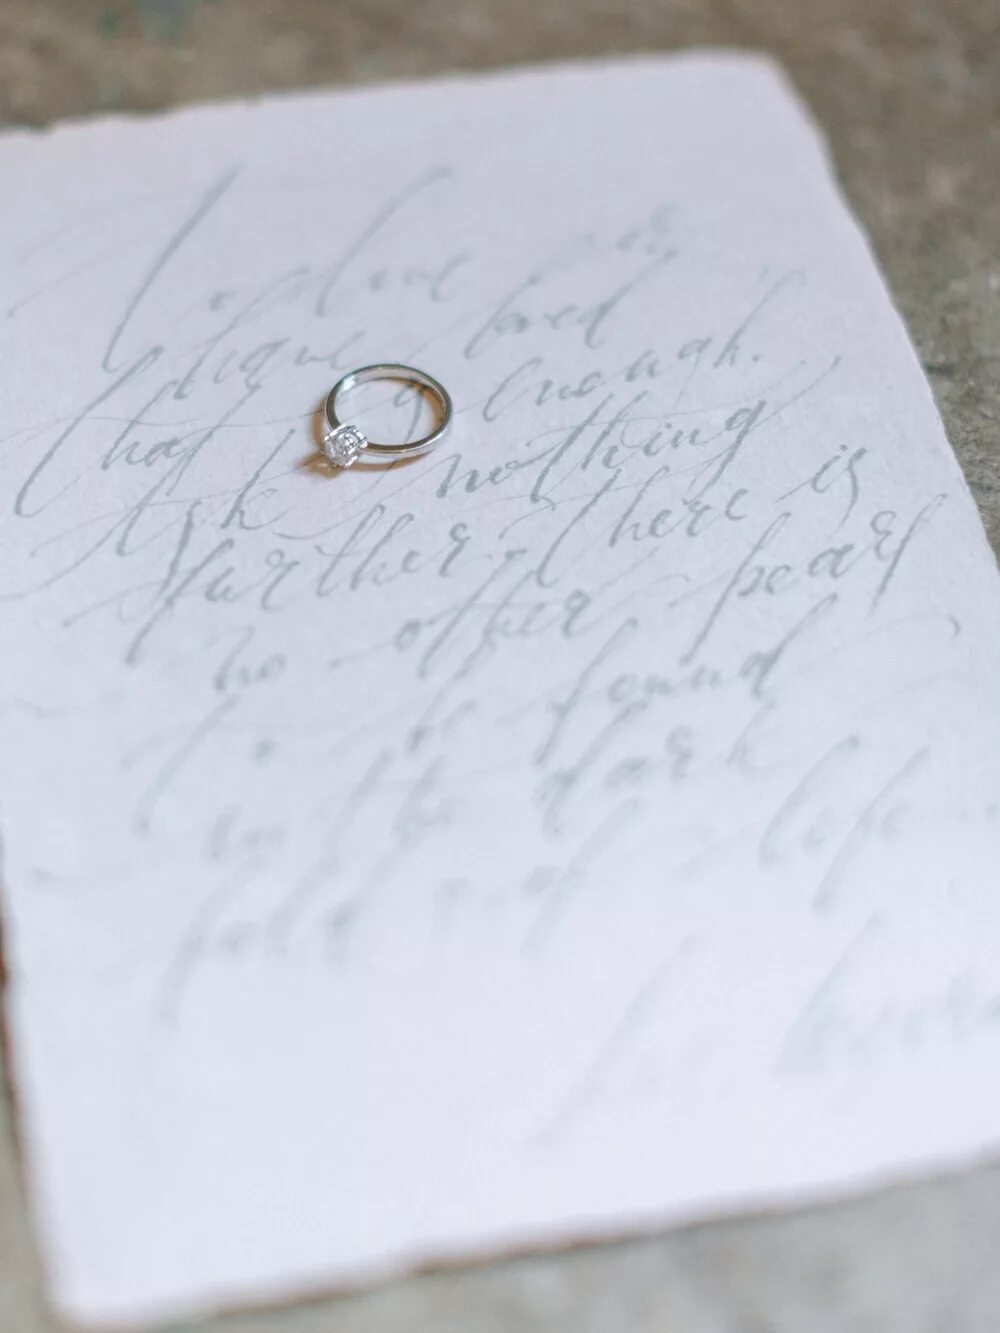 To love is
t have loved
that is enough.
Ask nothing
further. There is
no other pearl
to be found
in the dark
fold of life